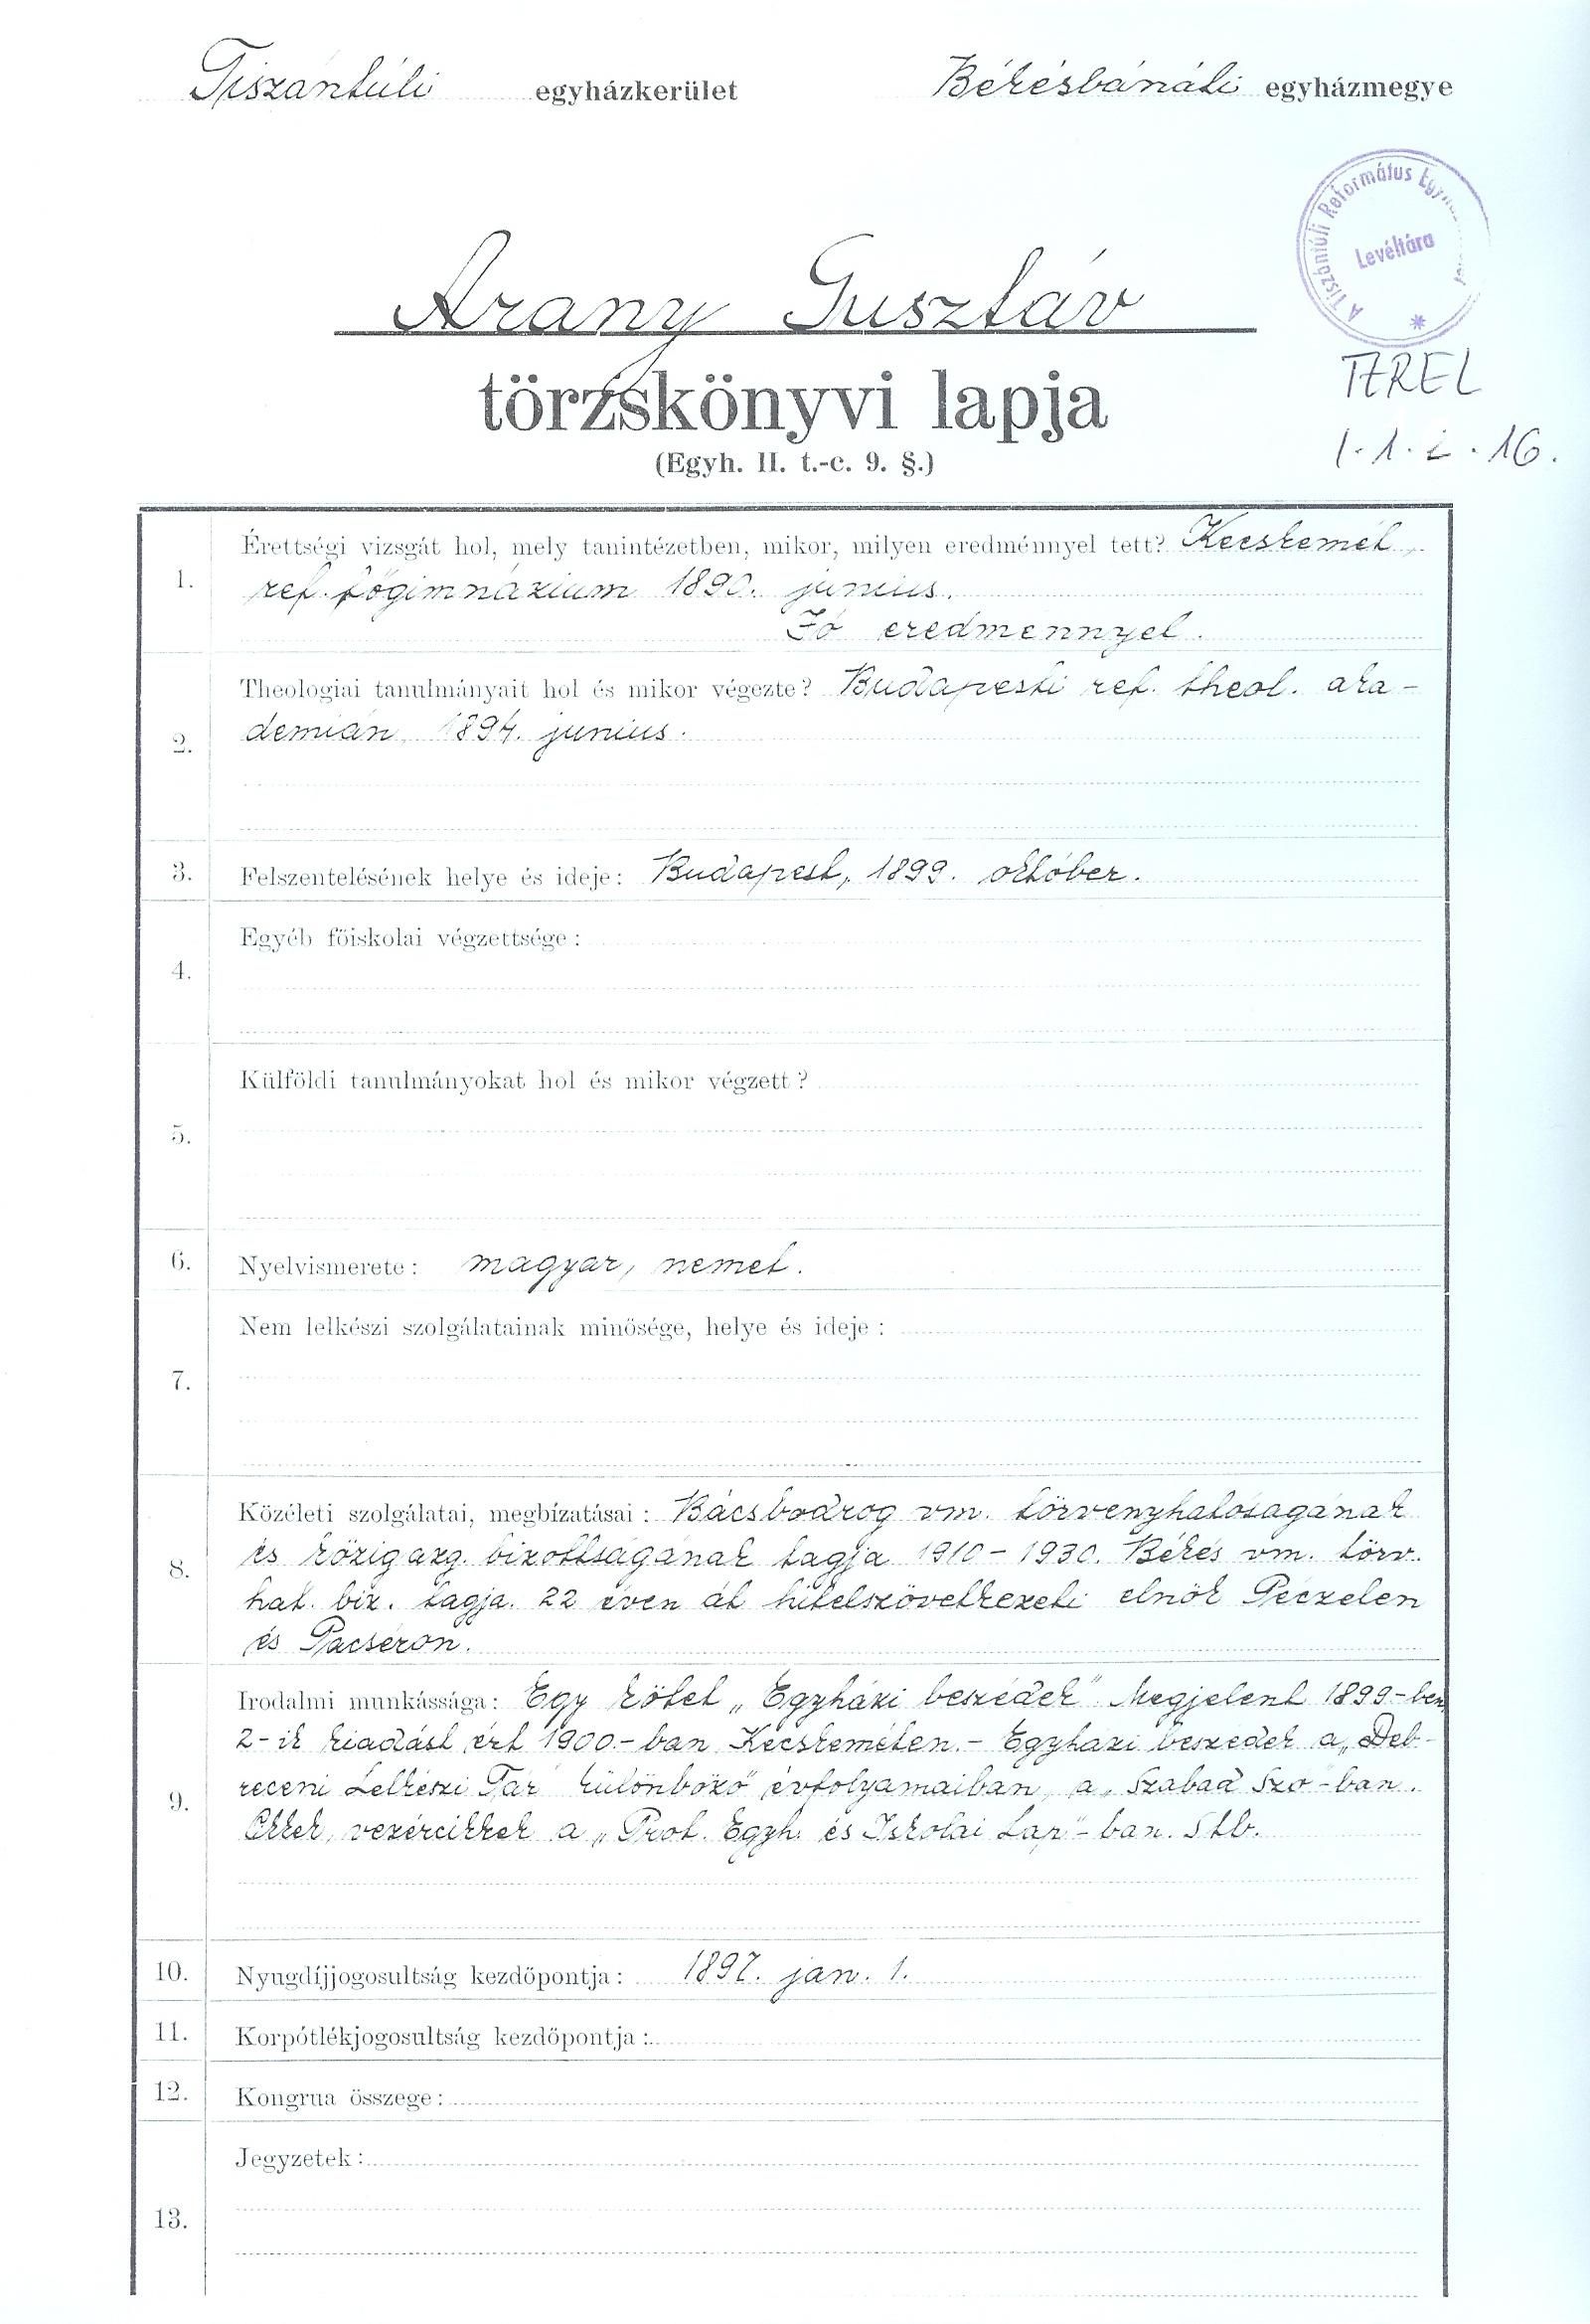 Tiszántúli egyházkerület Békésbánáti egyházmegye
A Tiszántúli Református
Levéltára
Arany Gusztáv
törzskönyvi lapja
TtREL
(Egyh. II. t.-c. 9. §.)
I. 1. i. 16.
1. Érettségi vizsgát hol, mely tanintézetben, mikor, milyen eredménnyel tett? Kecskemét,
ref. főgimnázium 1890. junius.
Jó eredmennyel.
2. Theologiai tanulmányait hol és mikor végezte? Budapesti ref. theol. aka-
demián, 1894. junius.
3. Felszentelésének helye és ideje: Budapest, 1899. október.
4. Egyéb főiskolai végzettsége:
5. Külföldi tanulmányokat hol és mikor végzett?
6. Nyelvismerete: magyar, nemet.
7. Nem lelkészi szolgálatainak minősége, helye és ideje:
8. Közéleti szolgálatai, megbízatásai: Bácsbodrog vm. törvenyhatóságának
és közigazg. bizottságának tagja 1910-1930. Békés vm. törv.
hat. biz. tagja. 22 éven át hitelszövetkezeti elnök Péczelen
és Pacséron.
9. Irodalmi munkássága: Egy kötet „Egyházi beszédek" Megjelent 1899-ben
2-ik kiadást ért 1900-ban Kecskeméten. - Egyházi beszédek a „Deb-
receni Lelkészi Tár" különböző évfolyamaiban, a „Szabad Szó"-ban.
Cikkek, vezércikkek a „Prot. Egyh. és Iskolai Lap"-ban. Stb.
10. Nyugdíjjogosultság kezdőpontja: 1897. jan. 1.
11. Korpótlékjogosultság kezdőpontja:
12. Kongrua összege:
13. Jegyzetek: